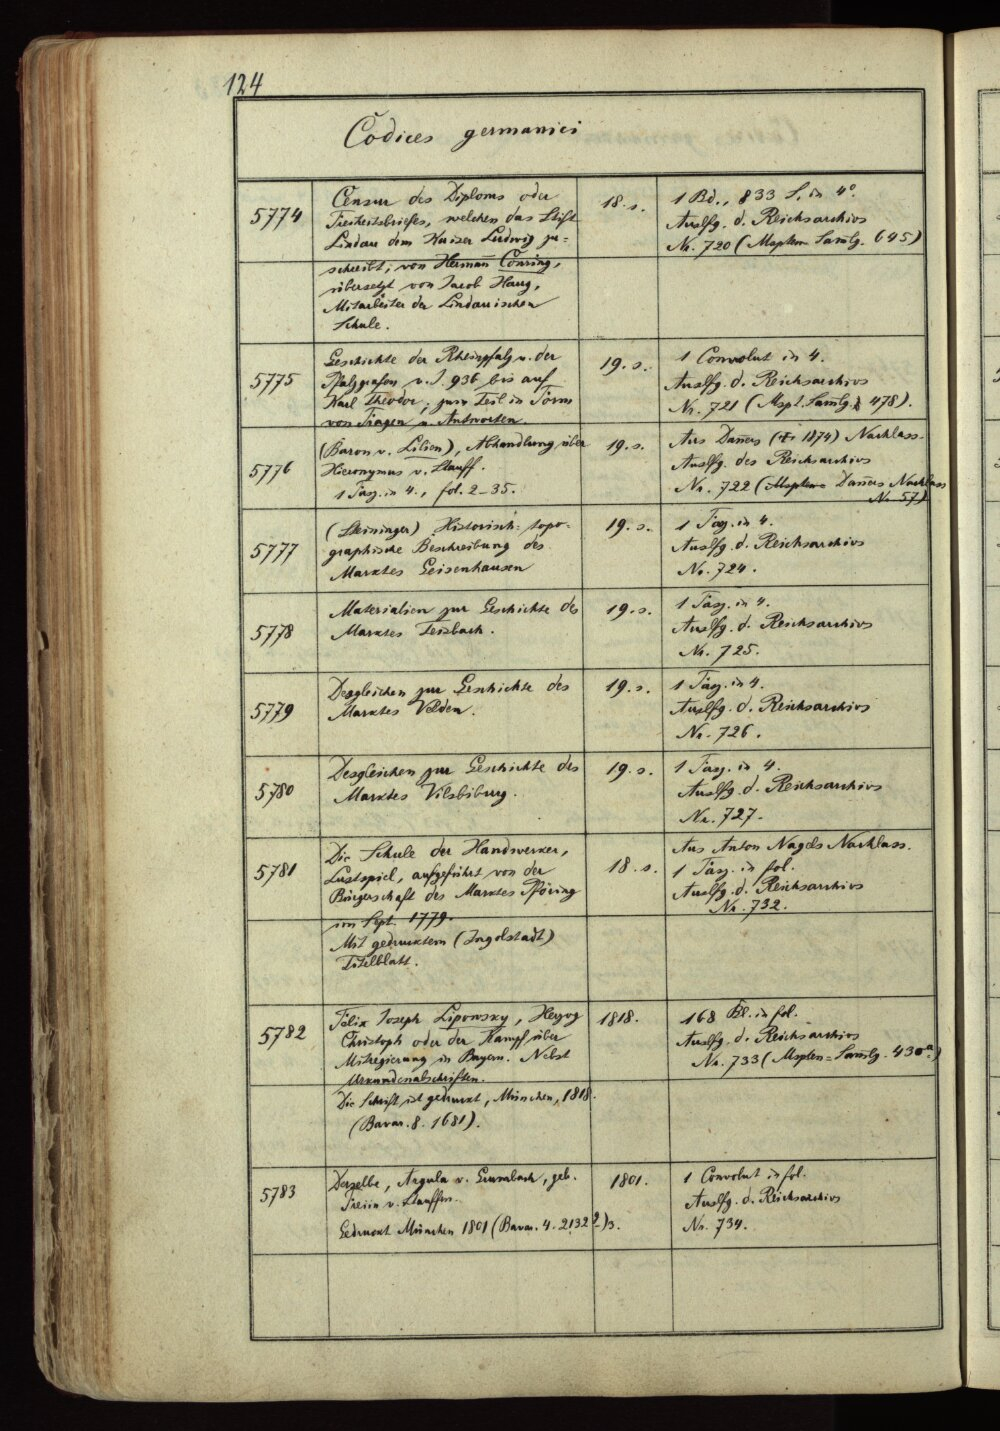 124
Codices germanici
5774
Censur des Diploms oder
Freiheitsbriefes, welchen das Stift
Lindau dem Kaiser Ludwig zu=
schreibt; von Hermann Conring,
übersetzt von Jacob Haug,
Mitarbeiter der Lindauischen
Schule.
18. s.
1 Bd., 833 S. in 4°
Auslfg. d. Reichsarchivs
Nr. 720 (Msptem Samlg. 645)
5775
Geschichte der Rheinpfalz u. der
Pfalzgrafen v. J. 936 bis auf
Karl Theodor; zum Teil in Form
von Fragen u. Antworten.
19. s.
1 Convolut in 4.
Auslfg. d. Reichsarchivs
Nr. 721 (Mspt. Samlg. 478).
5776
(Baron v. Lilien), Abhandlung über
Hieronymus v. Stauff.
1 Fasz. in 4., fol. 2-35.
19. s.
Aus Danners († 1874) Nachlass.
Auslfg. des Reichsarchivs
Nr. 722 (Msptem Danners Nachlass
Nr. 57)
5777
(Steininger) Historisch-topo-
graphische Beschreibung des
Marktes Geisenhausen
19. s.
1 Fasz. in 4.
Auslfg. d. Reichsarchivs
Nr. 724.
5778
Materialien zur Geschichte des
Marktes Teisbach.
19. s.
1 Fasz. in 4.
Auslfg. d. Reichsarchivs
Nr. 725.
5779
Desgleichen zur Geschichte des
Marktes Velden.
19. s.
1 Fasz. in 4.
Auslfg. d. Reichsarchivs
Nr. 726.
5780
Desgleichen zur Geschichte des
Marktes Vilsbiburg.
19. s.
1 Fasz. in 4.
Auslfg. d. Reichsarchivs
Nr. 727.
5781
Die Schule der Handwerker,
Lustspiel, aufgeführt von der
Bürgerschaft des Marktes Pföring
im Sept. 1779.
Mit gedrucktem (Ingolstadt)
Titelblatt.
18. s.
Aus Anton Nagels Nachlass.
1 Fasz. in fol.
Auslfg. d. Reichsarchivs
Nr. 732.
5782
Felix Joseph Lipowsky, Herzog
Christoph oder der Kampf über
Mitregierung in Bayern. Nebst
Urkundenabschriften.
Die Schrift ist gedruckt, München, 1818.
(Bavar. 8. 1681).
1818.
168 Bl. in fol.
Auslfg. d. Reichsarchivs
Nr. 733 (Msplen-Samlg. 430a.)
5783
Derselbe, Argula v. Grumbach, geb.
Freiin v. Stauffen.
Gedruckt München 1801 (Bavar. 4. 2132
1801.
1 Convolut in fol.
Auslfg. d. Reichsarchivs
Nr. 734.